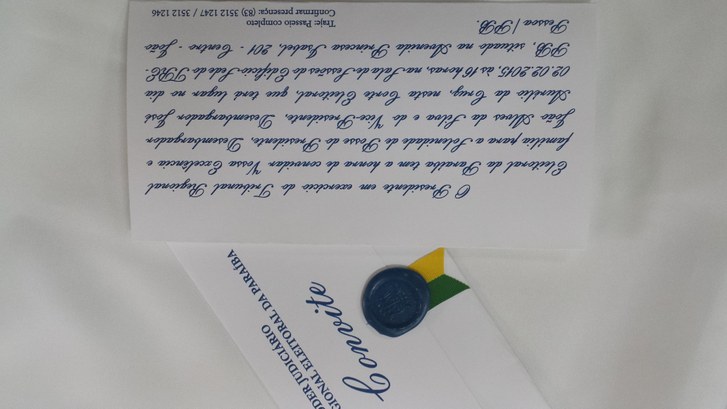 O Presidente em exercício do Tribunal Regional
Eleitoral da Paraíba tem a honra de convidar Vossa Excelência e
família para a Solenidade de Posse do Presidente, Desembargador
João Alves da Silva e do Vice-Presidente, Desembargador José
Aurélio da Cruz, nesta Corte Eleitoral, que terá lugar no dia
02.02.2015, às 16 horas, na Sala de Sessões do Edifício-Sede do TRE-
PB, situado na Avenida Princesa Isabel, 201 - Centro - João
Pessoa / PB.
Traje: Passeio completo
Confirmar presença: (83) 3512 1247 / 3512 1246
ODER JUDICIÁRIO
GIONAL ELEITORAL DA PARAÍBA
Convite